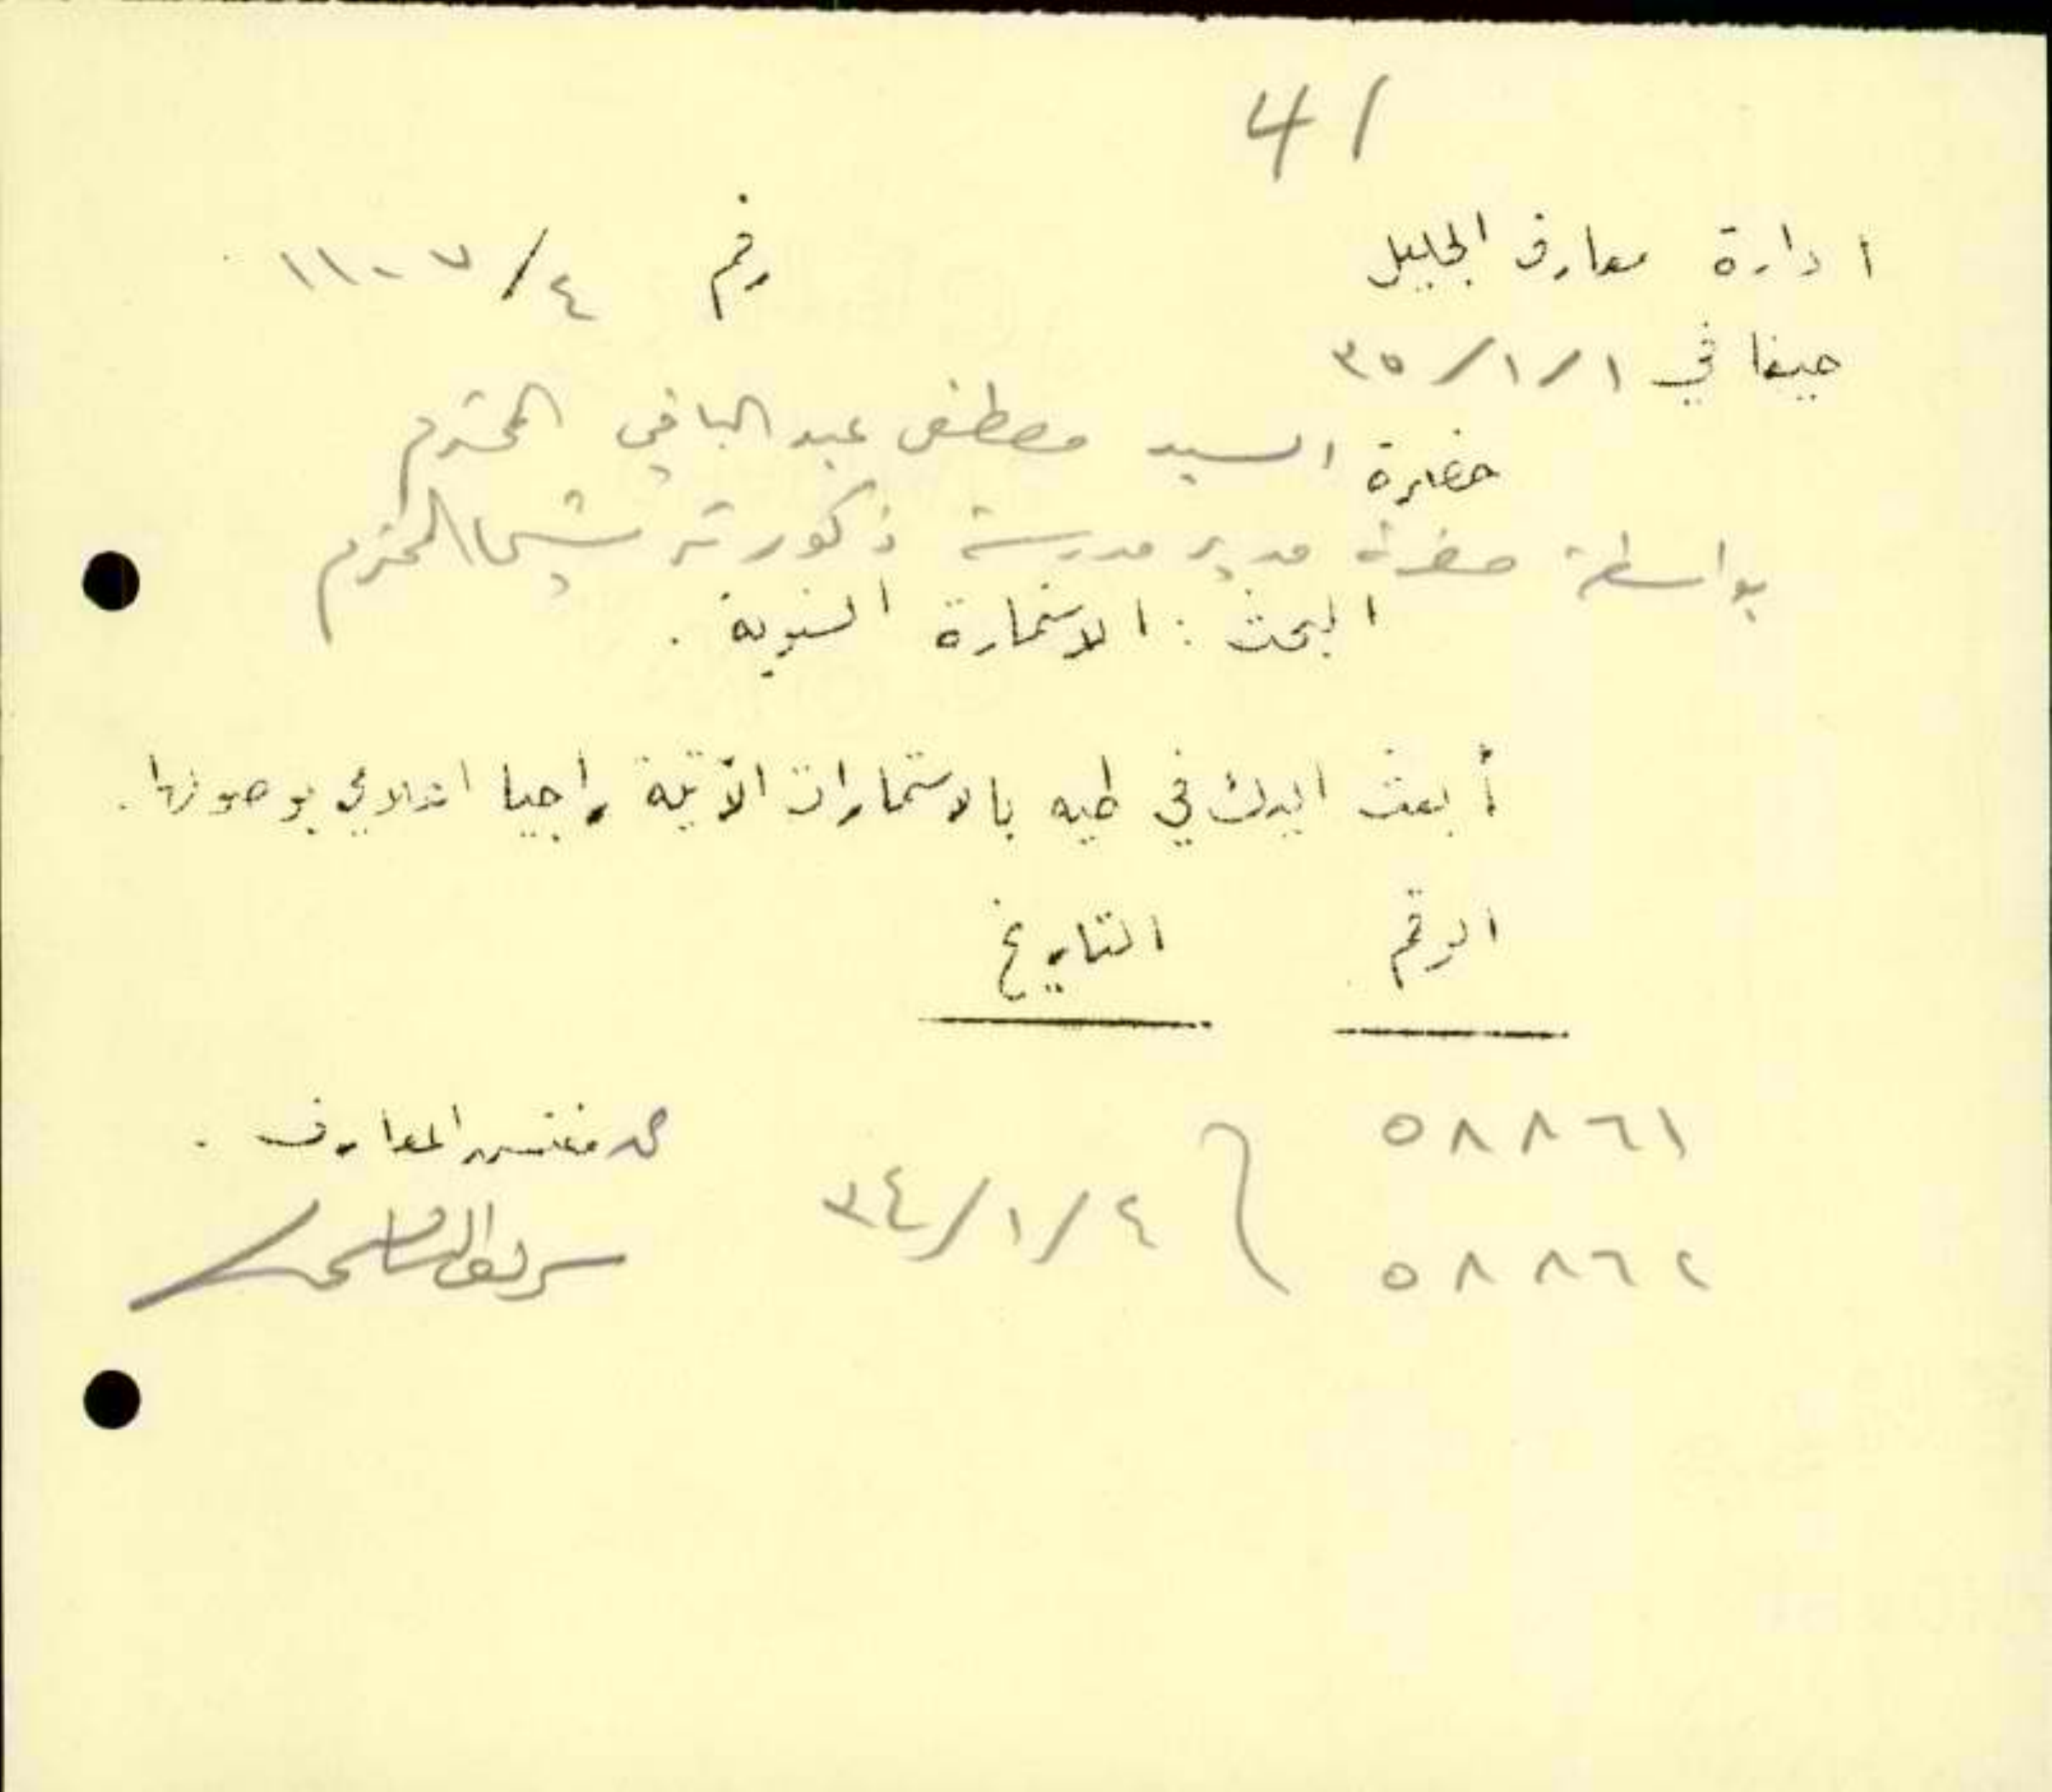 41
ادارة معارف الجليل
رقم ٤/١١٠٧
حيفا في ١/١/٣٥
حضرة السيد مصطفى عبد الباقي المحترم
بواسطة حضرة مدير مدرسة ذكور ترشيحا المحترم
البحث : الاستمارة السنوية .
أبعث اليك في طيه بالاستمارات الآتية راجيا اعلامي بوصولها .
الرقم التاريخ
٥٨٨٦١
٣٤/١/٤
٥٨٨٦٢
مفتش المعارف .